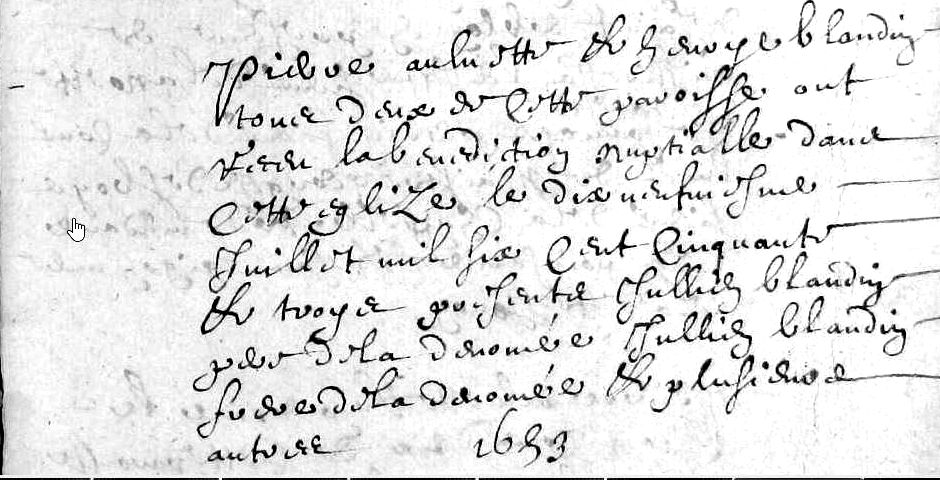 Pierre aulnette & Jenvye blandin
tous deux de Cette paroisse ont
Receu la benediction nuptialle dans
Cette eglize le dixneufuiesme
Juillet mil six Cent Cinquante
& troys presents Jullien blandin
pere de la denomée Jullien blandin
frere de la denomée & plusieurs
autres 1653